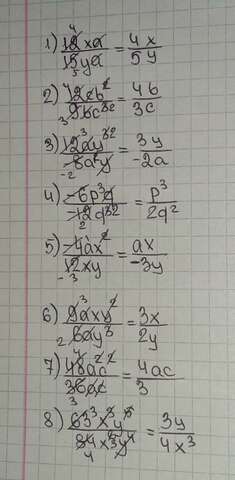 1) 12xa/15ya = 4x/5y
2) 12cb²/9bc² = 4b/3c
3) 12ay²/-8a²y = 3y/-2a
4) -6p³q/-12q³ = p³/2q²
5) -4ax²/12xy = ax/-3y
6) 9axy²/6ay³ = 3x/2y
7) 48a²c²/36ac = 4ac/3
8) 63x²y⁵/84x⁵y⁴ = 3y/4x³